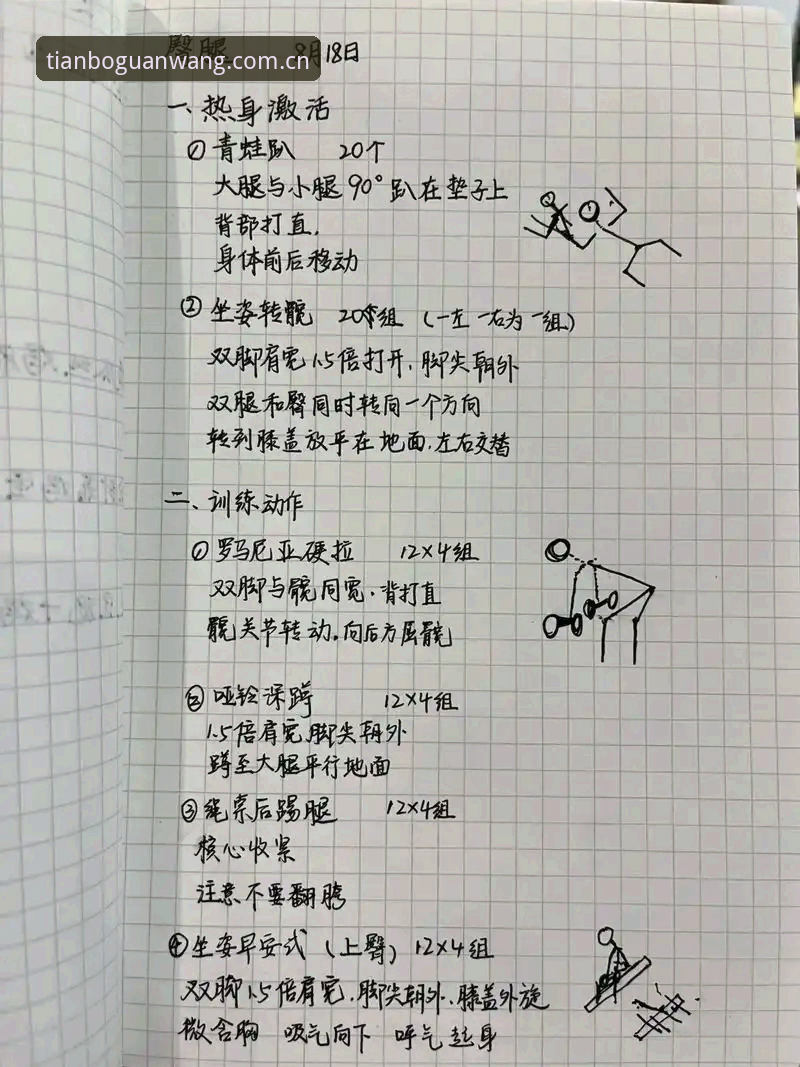 臀腿 8月18日
tianboguanwang.com.cn
一、热身激活
① 青蛙趴 20个
大腿与小腿90°趴在垫子上
背部打直,
身体前后移动
② 坐姿转髋 20组 (一左一右为一组)
双脚肩宽1.5倍打开,脚尖朝外
双腿和臀同时转向一个方向
转到膝盖放平在地面.左右交替
二、训练动作
① 罗马尼亚硬拉 12×4组
双脚与髋同宽.背打直
髋关节转动。向后方屈髋
② 哑铃深蹲 12×4组
1.5倍肩宽,脚尖朝外
蹲至大腿平行地面
③ 绳索后踢腿 12×4组
核心收紧
注意不要翻胯
④ 坐姿早安式 (上臀) 12×4组
双脚1.5倍肩宽.脚尖朝外.膝盖外旋
微含胸 吸气向下 呼气起身